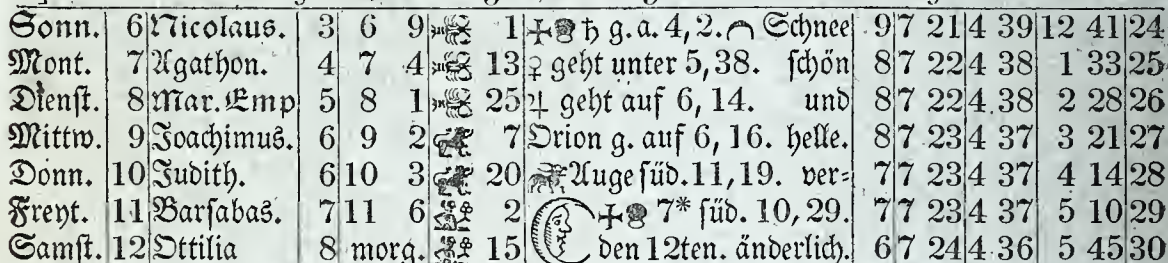 Sonn. 6 Nicolaus. 3 6 9 1 ♄ g. a. 4, 2. Schnee 9 7 21 4 39 12 41 24
Mont. 7 Agathon. 4 7 4 13 ♀ geht unter 5, 38. schön 8 7 22 4 38 1 33 25
Dienst. 8 Mar. Emp 5 8 1 25 ♃ geht auf 6, 14. und 8 7 22 4 38 2 28 26
Mittw. 9 Joachimus. 6 9 2 7 Orion g. auf 6, 16. helle. 8 7 23 4 37 3 21 27
Donn. 10 Judith. 6 10 3 20 Auge süd. 11, 19. ver= 7 7 23 4 37 4 14 28
Freyt. 11 Barsabas. 7 11 6 2 7* süd. 10, 29. 7 7 23 4 37 5 10 29
Samst. 12 Ottilia 8 morg. 15 den 12ten. änderlich. 6 7 24 4 36 5 45 30